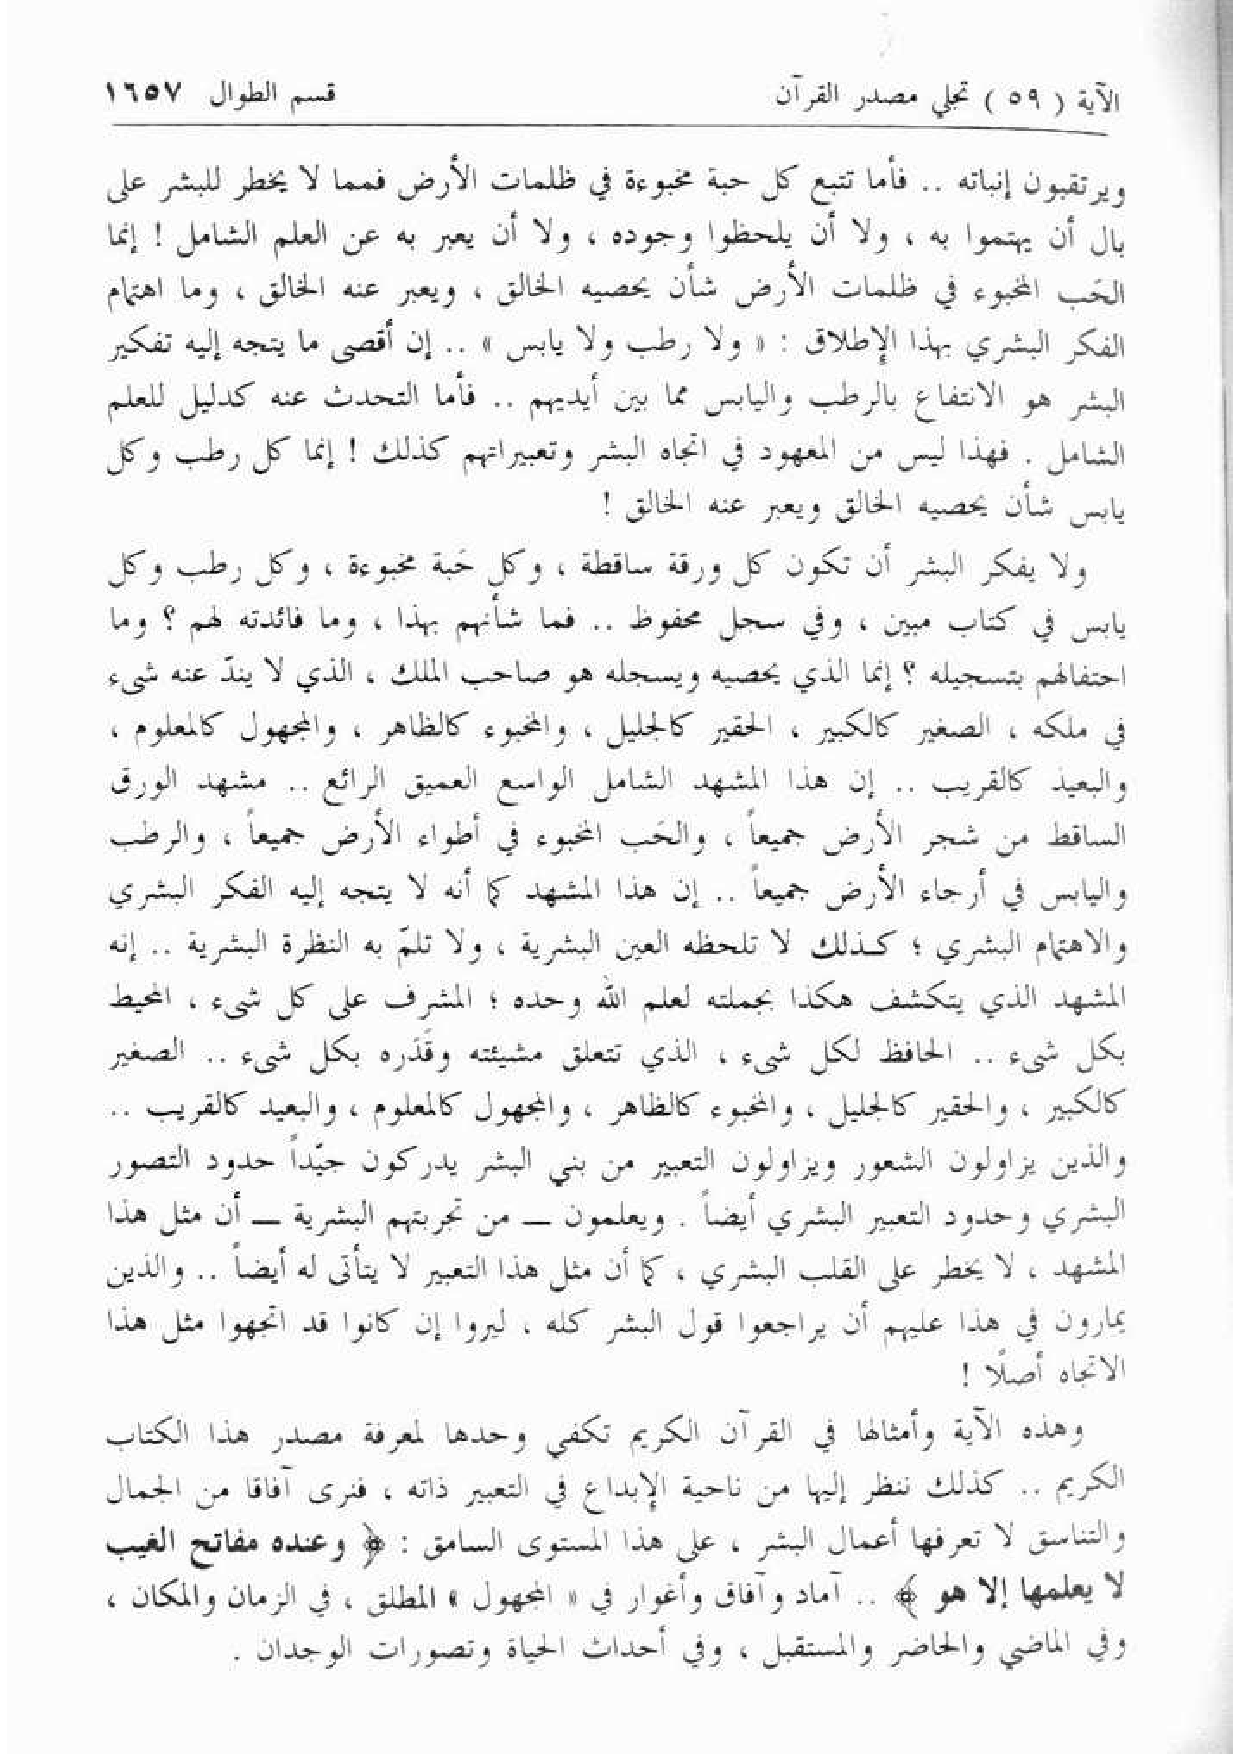 الآية ( ٥٩ ) تجلي مصدر القرآن قسم الطوال ١٦٥٧
ويرتقبون إنباته .. فأما تتبع كل حبة مخبوءة في ظلمات الأرض فمما لا يخطر للبشر على
بال أن يهتموا به ، ولا أن يلحظوا وجوده ، ولا أن يعبر به عن العلم الشامل ! إنما
الحَب المخبوء في ظلمات الأرض شأن يحصيه الخالق ، ويعبر عنه الخالق ، وما اهتمام
الفكر البشري بهذا الإطلاق : « ولا رطب ولا يابس » .. إن أقصى ما يتجه إليه تفكير
البشر هو الانتفاع بالرطب واليابس مما بين أيديهم .. فأما التحدث عنه كدليل للعلم
الشامل . فهذا ليس من المعهود في اتجاه البشر وتعبيراتهم كذلك ! إنما كل رطب وكل
يابس شأن يحصيه الخالق ويعبر عنه الخالق !
ولا يفكر البشر أن تكون كل ورقة ساقطة ، وكل حَبة مخبوءة ، وكل رطب وكل
يابس في كتاب مبين ، وفي سجل محفوظ .. فما شأنهم بهذا ، وما فائدته لهم ؟ وما
احتفالهم بتسجيله ؟ إنما الذي يحصيه ويسجله هو صاحب الملك ، الذي لا يندّ عنه شىء
في ملكه ، الصغير كالكبير ، الحقير كالجليل ، والمخبوء كالظاهر ، والمجهول كالمعلوم ،
والبعيد كالقريب .. إن هذا المشهد الشامل الواسع العميق الرائع .. مشهد الورق
الساقط من شجر الأرض جميعاً ، والحَب المخبوء في أطواء الأرض جميعاً ، والرطب
واليابس في أرجاء الأرض جميعاً .. إن هذا المشهد كما أنه لا يتجه إليه الفكر البشري
والاهتمام البشري ؛ كذلك لا تلحظه العين البشرية ، ولا تلمّ به النظرة البشرية .. إنه
المشهد الذي يتكشف هكذا بجملته لعلم الله وحده ؛ المشرف على كل شىء ، المحيط
بكل شىء .. الحافظ لكل شىء ، الذي تتعلق مشيئته وقَدَره بكل شىء .. الصغير
كالكبير ، والحقير كالجليل ، والمخبوء كالظاهر ، والمجهول كالمعلوم ، والبعيد كالقريب ..
والذين يزاولون الشعور ويزاولون التعبير من بني البشر يدركون جيّداً حدود التصور
البشري وحدود التعبير البشري أيضاً . ويعلمون – من تجربتهم البشرية – أن مثل هذا
المشهد ، لا يخطر على القلب البشري ، كما أن مثل هذا التعبير لا يتأتى له أيضاً .. والذين
يمارون في هذا عليهم أن يراجعوا قول البشر كله ، ليروا إن كانوا قد اتجهوا مثل هذا
الاتجاه أصلًا !
وهذه الآية وأمثالها في القرآن الكريم تكفي وحدها لمعرفة مصدر هذا الكتاب
الكريم .. كذلك ننظر إليها من ناحية الإبداع في التعبير ذاته ، فنرى آفاقا من الجمال
والتناسق لا تعرفها أعمال البشر ، على هذا المستوى السامق : ﴿ وعنده مفاتح الغيب
لا يعلمها إلا هو ﴾ .. آماد وآفاق وأغوار في « المجهول » المطلق ، في الزمان والمكان ،
وفي الماضي والحاضر والمستقبل ، وفي أحداث الحياة وتصورات الوجدان .